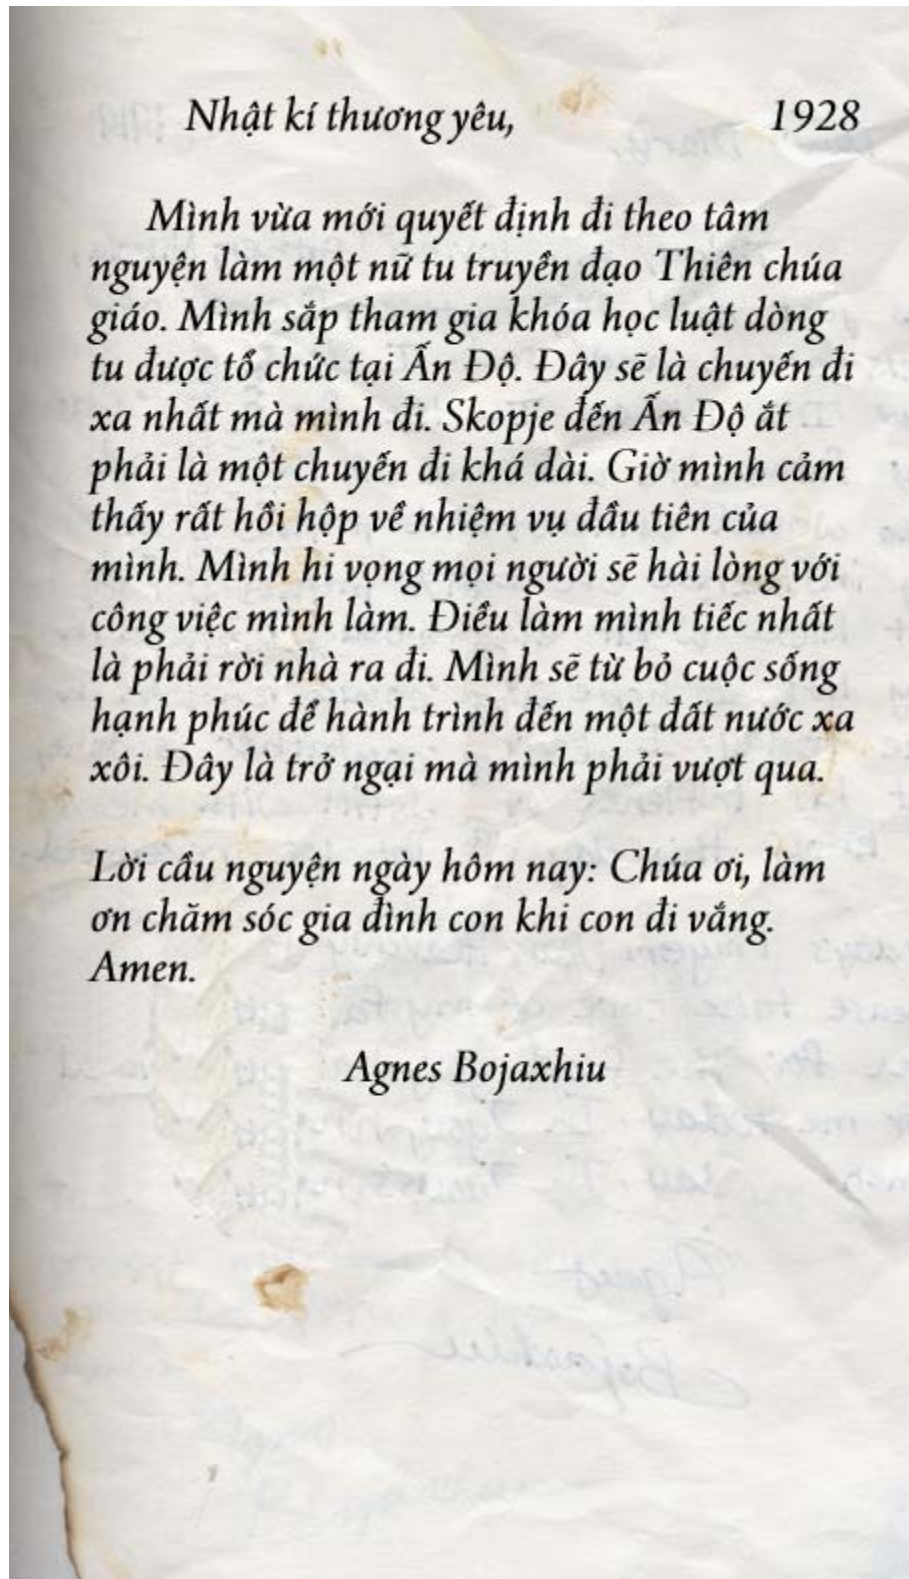 Nhật kí thương yêu, 1928
Mình vừa mới quyết định đi theo tâm
nguyện làm một nữ tu truyền đạo Thiên chúa
giáo. Mình sắp tham gia khóa học luật dòng
tu được tổ chức tại Ấn Độ. Đây sẽ là chuyến đi
xa nhất mà mình đi. Skopje đến Ấn Độ ắt
phải là một chuyến đi khá dài. Giờ mình cảm
thấy rất hồi hộp về nhiệm vụ đầu tiên của
mình. Mình hi vọng mọi người sẽ hài lòng với
công việc mình làm. Điều làm mình tiếc nhất
là phải rời nhà ra đi. Mình sẽ từ bỏ cuộc sống
hạnh phúc để hành trình đến một đất nước xa
xôi. Đây là trở ngại mà mình phải vượt qua.
Lời cầu nguyện ngày hôm nay: Chúa ơi, làm
ơn chăm sóc gia đình con khi con đi vắng.
Amen.
Agnes Bojaxhiu